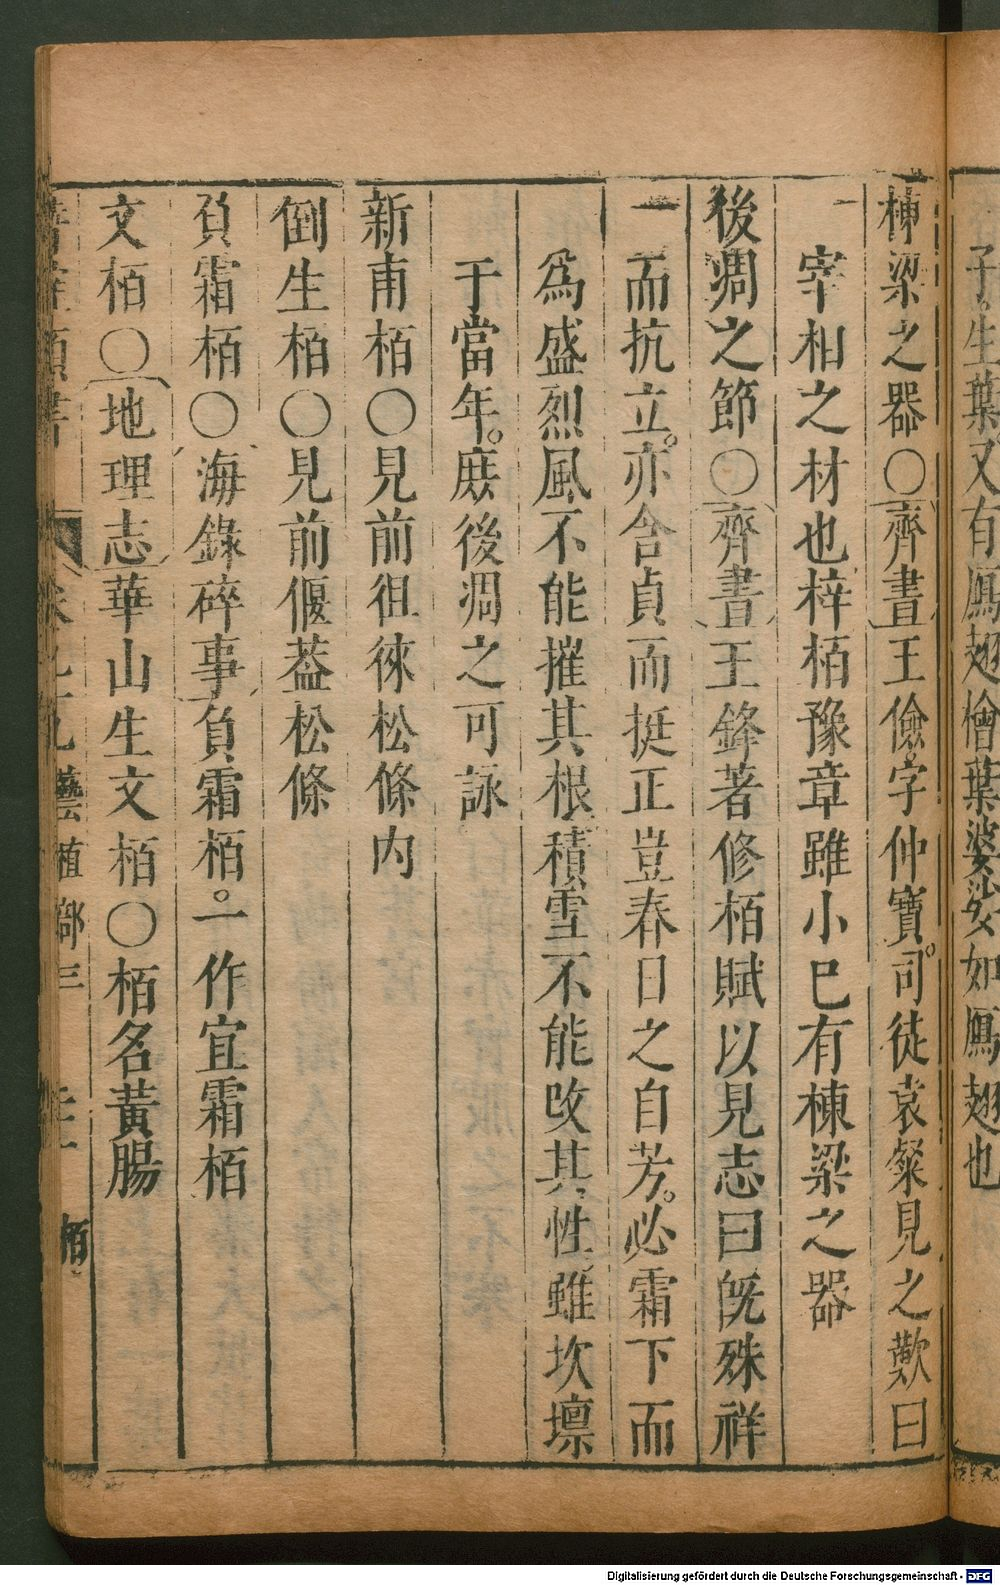 子。生葉又有鳫翅檜葉婆娑如鳫翅也
棟梁之器〇齊書王儉字仲寶。司徒袁粲見之歎曰
宰相之材也梓栢豫章雖小巳有棟梁之器
後凋之節〇齊書王鋒著修栢賦以見志曰旣殊祥
而抗立。亦含貞而挺正豈春日之自芳。必霜下而
為盛烈風不能摧其根積雪不能改其性雖坎壈
于當年。庶後凋之可詠
新甫栢〇見前徂徠松條内
倒生栢〇見前偃葢松條
負霜栢〇海錄碎事負霜栢。一作宜霜栢
文栢〇地理志華山生文栢〇栢名黃腸
卷 九十九 藝植部三 栢
Digitalisierung gefördert durch die Deutsche Forschungsgemeinschaft - DFG